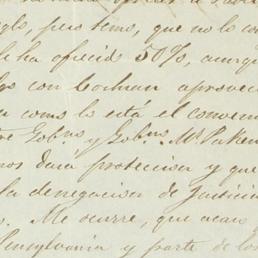 glo, pero temo, que no lo con
le ha ofrecido 50%, aunque
los con Cochran aprovec
a como lo está el conveni
tre Gob.nos y Gob.nos Mr Paken
nos dará proteccion y que
la denegacion de Justicia
s. Me ocurre, que acaso
Pensylvania y parte de los